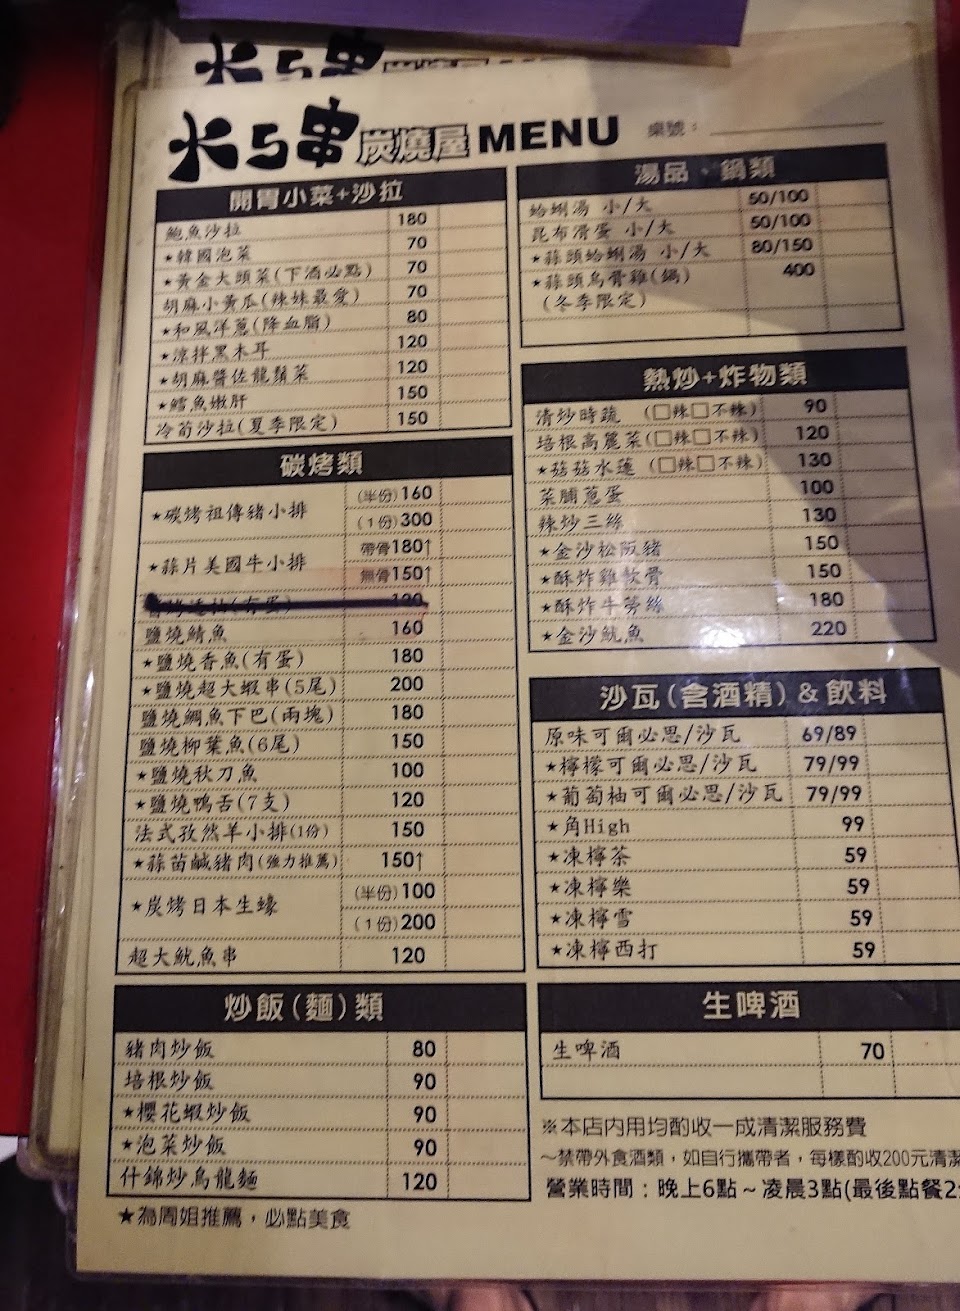 串 炭燒屋 MENU 桌號：
開胃小菜+沙拉
鮑魚沙拉 180
★韓國泡菜 70
★黃金大頭菜(下酒必點) 70
胡麻小黃瓜(辣妹最愛) 70
★和風洋蔥(降血脂) 80
★涼拌黑木耳 120
★胡麻醬佐龍鬚菜 120
★鱈魚嫩肝 150
冷筍沙拉(夏季限定) 150
碳烤類
★碳烤祖傳豬小排 (半份)160
(1份)300
★蒜片美國牛小排 帶骨180↑
無骨150↑
(有蛋)
鹽燒鯖魚 160
★鹽燒香魚(有蛋) 180
★鹽燒超大蝦串(5尾) 200
鹽燒鯛魚下巴(兩塊) 180
鹽燒柳葉魚(6尾) 150
★鹽燒秋刀魚 100
★鹽燒鴨舌(7支) 120
法式孜然羊小排(1份) 150
★蒜苗鹹豬肉(強力推薦) 150↑
★炭烤日本生蠔 (半份)100
(1份)200
超大魷魚串 120
炒飯(麵)類
豬肉炒飯 80
培根炒飯 90
★櫻花蝦炒飯 90
★泡菜炒飯 90
什錦炒烏龍麵 120
★為周姐推薦，必點美食
湯品、鍋類
蛤蜊湯 小/大 50/100
昆布滑蛋 小/大 50/100
★蒜頭蛤蜊湯 小/大 80/150
★蒜頭烏骨雞(鍋) 400
(冬季限定)
熱炒+炸物類
清炒時蔬 (□辣□不辣) 90
培根高麗菜(□辣□不辣) 120
★菇菇水蓮 (□辣□不辣) 130
菜脯蔥蛋 100
辣炒三絲 130
★金沙松阪豬 150
★酥炸雞軟骨 150
★酥炸牛蒡絲 180
★金沙魷魚 220
沙瓦(含酒精)&飲料
原味可爾必思/沙瓦 69/89
★檸檬可爾必思/沙瓦 79/99
★葡萄柚可爾必思/沙瓦 79/99
★角High 99
★凍檸茶 59
★凍檸樂 59
★凍檸雪 59
★凍檸西打 59
生啤酒
生啤酒 70
※本店內用均酌收一成清潔服務費
～禁帶外食酒類，如自行攜帶者，每樣酌收200元清潔
營業時間：晚上6點～凌晨3點(最後點餐2